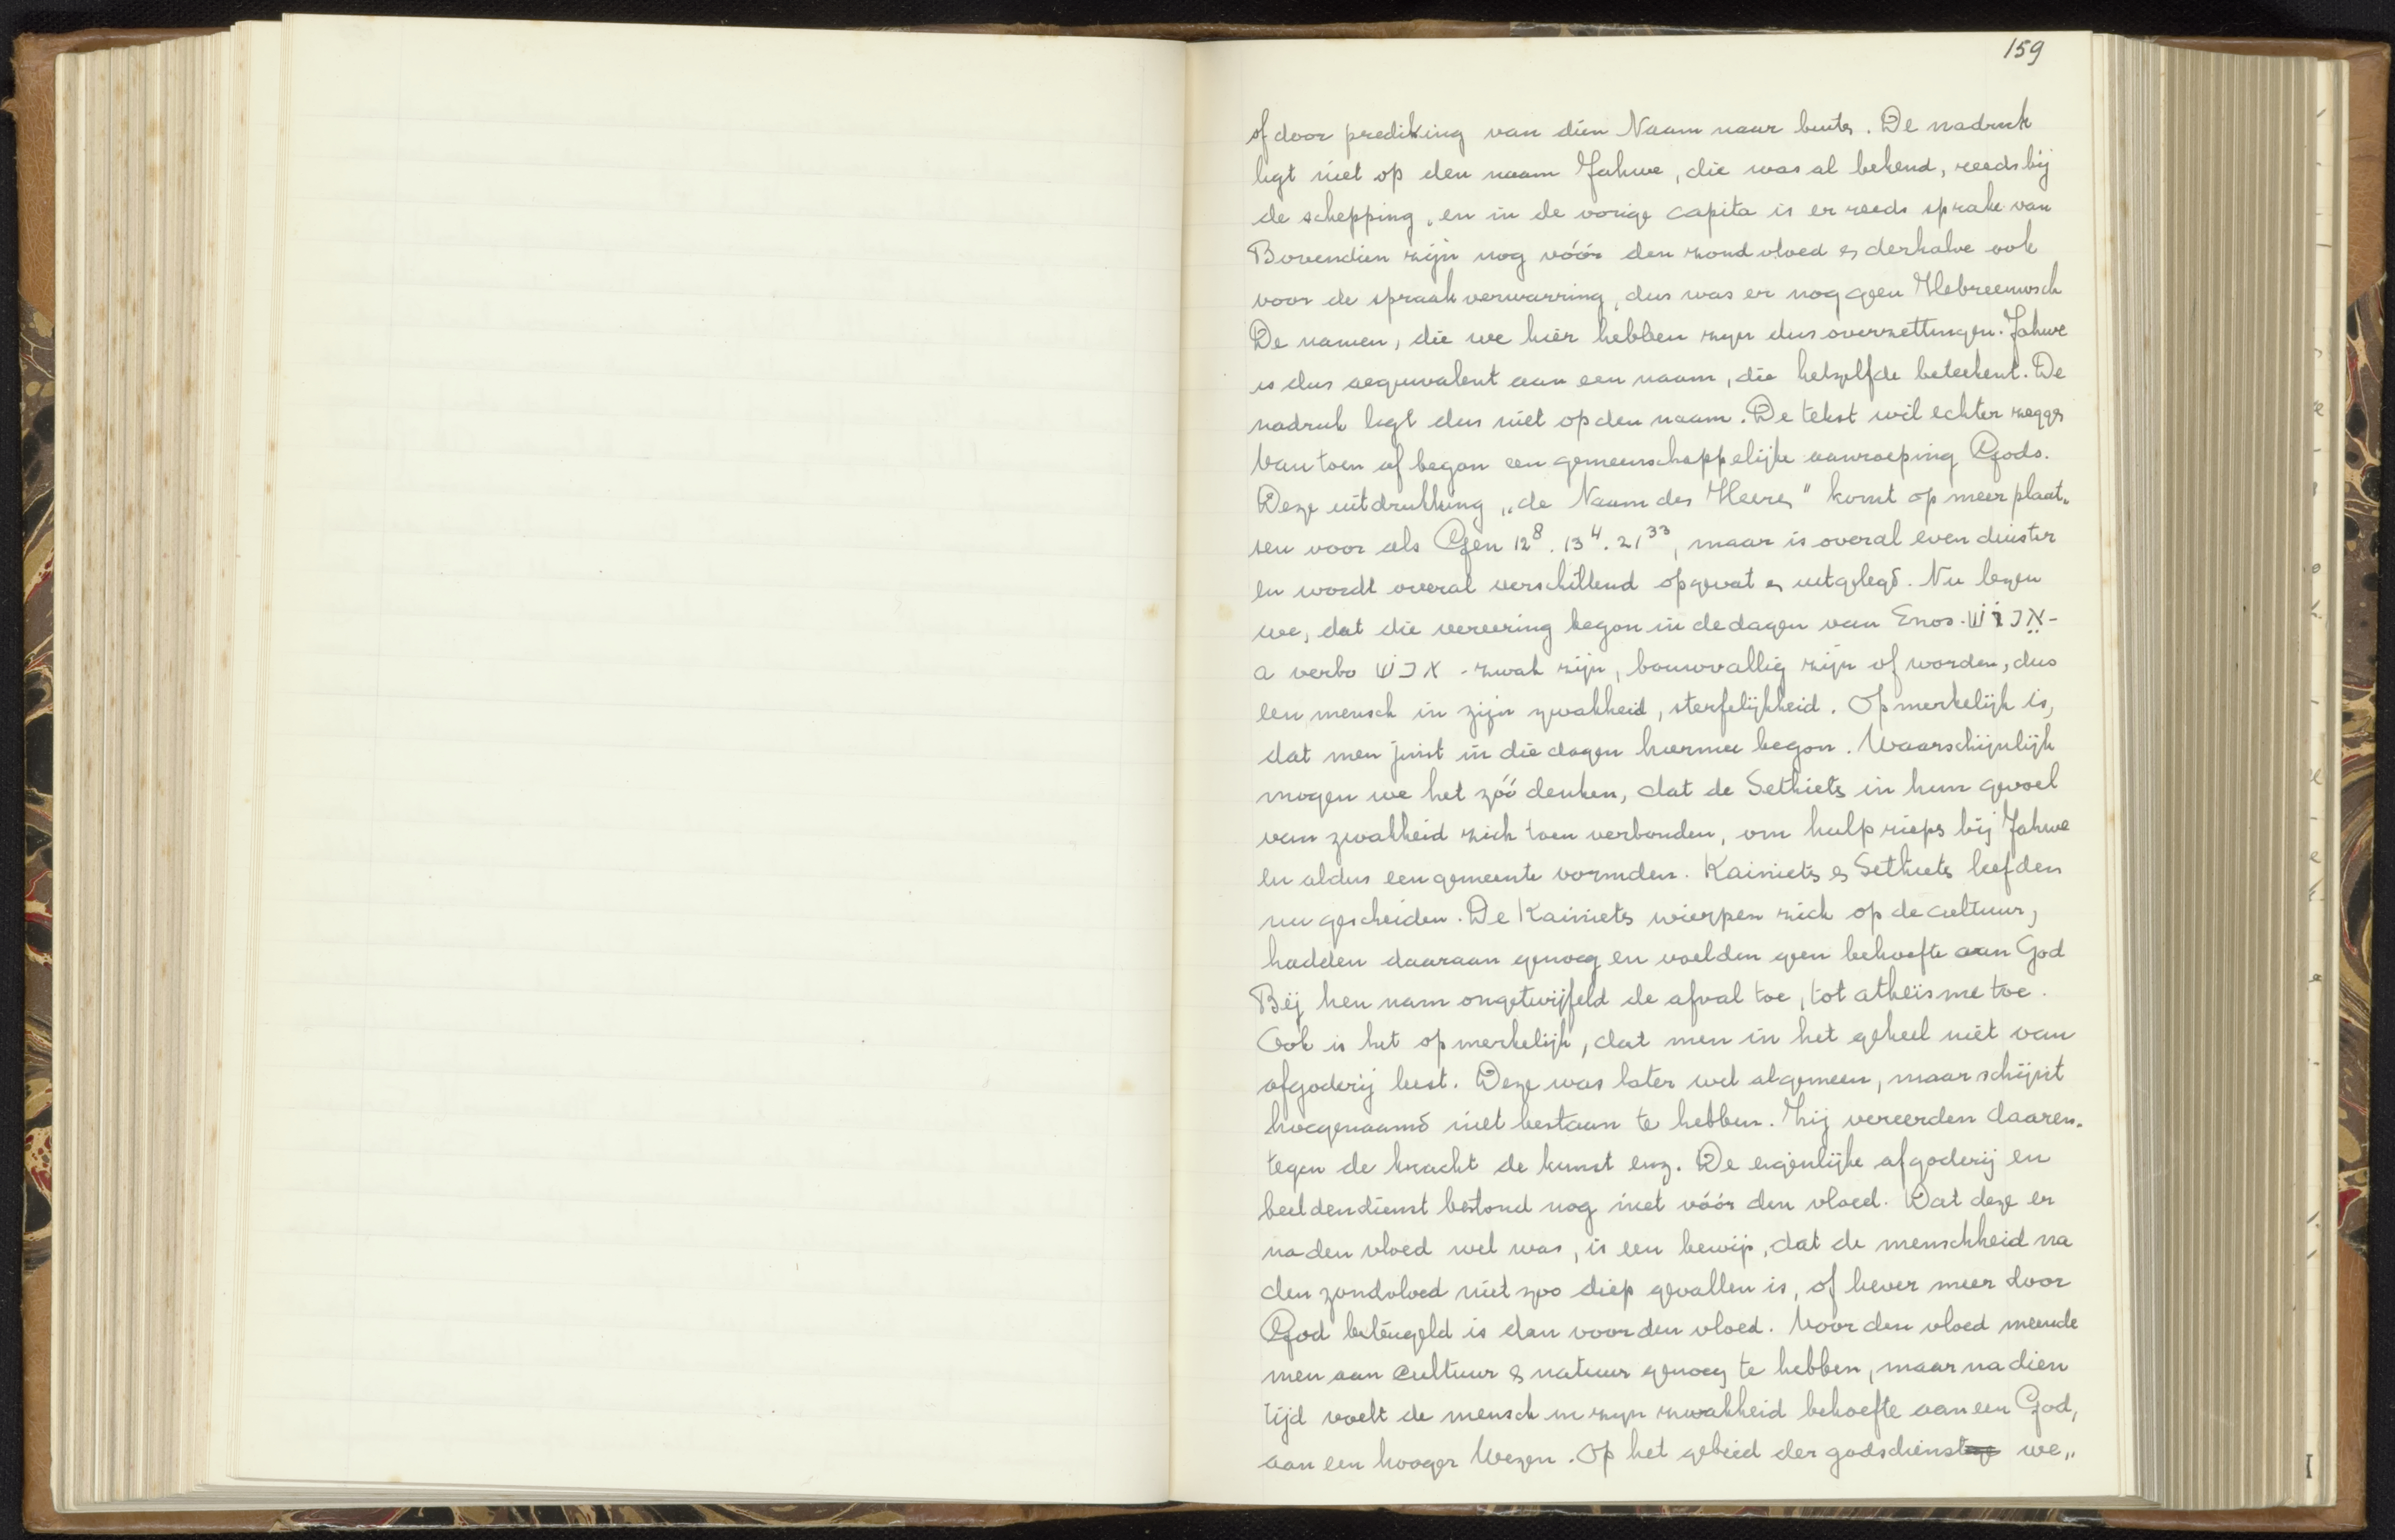 159
of door prediking van dien Naam naar buiten. De nadruk
ligt niet op den naam Jahwe, die was al bekend, reeds bij
de schepping, en in de vorige capita is er reeds sprake van
Bovendien zijn nog vóór den zondvloed en derhalve ook
voor de spraakverwarring, dus was er nog geen Hebreeuwsch
De namen, die we hier hebben zijn dus overzettingen. Jahwe
is dus aequivalent aan een naam, die hetzelfde beteekent. De
nadruk ligt dus niet op den naam. De tekst wil echter zeggen
Van toen af begon een gemeenschappelijke aanroeping Gods.
Deze uitdrukking „de Naam des Heeren" komt op meer plaat„
sen voor als Gen 12⁸. 13⁴. 21³³, maar is overal even duister
en wordt overal verschillend opgevat en uitgelegd. Nu lezen
we, dat die vereering begon in de dagen van Enos. אֱנוֹשׁ -
a verbo אנשׁ - zwak zijn, bouwvallig zijn of worden, dus
een mensch in zijn zwakheid, sterfelijkheid. Opmerkelijk is,
dat men juist in die dagen hiermee begon. Waarschijnlijk
mogen we het zóó denken, dat de Sethieten in hun gevoel
van zwakheid zich toen verbonden, om hulp riepen bij Jahwe
en aldus een gemeente vormden. Kainieten en Sethieten leefden
nu gescheiden. De Kainieten wierpen zich op de cultuur,
hadden daaraan genoeg en voelden geen behoefte aan God
Bij hen nam ongetwijfeld de afval toe, tot atheïsme toe.
Ook is het opmerkelijk, dat men in het geheel niet van
afgoderij leest. Deze was later wel algemeen, maar schijnt
hoegenaamd niet bestaan te hebben. Zij vereerden daaren„
tegen de kracht de kunst enz. De eigenlijke afgoderij en
beeldendienst bestond nog niet vóór den vloed. Dat deze er
na den vloed wel was, is een bewijs, dat de menschheid na
den zondvloed niet zoo diep gevallen is, of liever meer door
God beteugeld is dan voor den vloed. Voor den vloed meende
men aan cultuur en natuur genoeg te hebben, maar na dien
tijd voelt de mensch in zijn zwakheid behoefte aan een God,
aan een hooger Wezen. Op het gebied der godsdienst we„